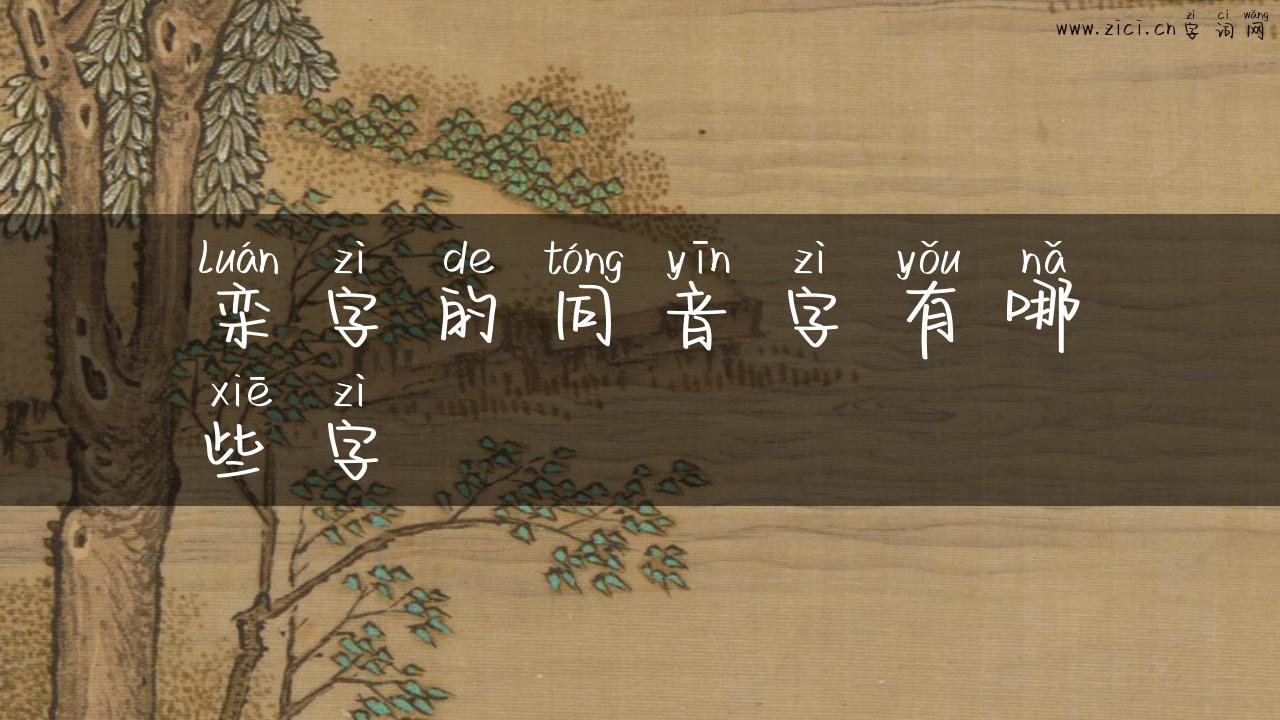 zì cí wǎng
www.zici.cn 字词网
luán zì de tóng yīn zì yǒu nǎ
栾字的同音字有哪
xiē zì
些字